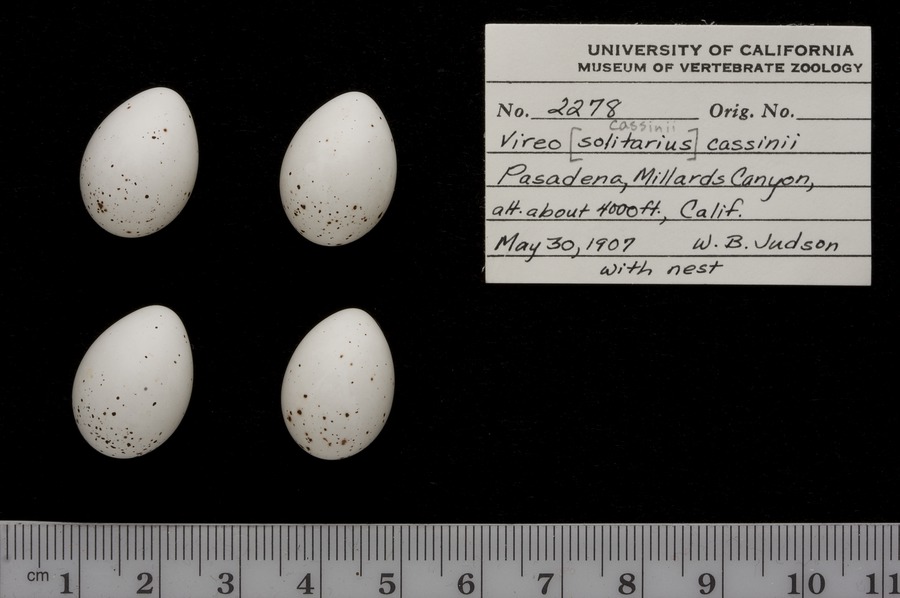 UNIVERSITY OF CALIFORNIA
MUSEUM OF VERTEBRATE ZOOLOGY
No. 2278 Orig. No.
cassinii
Vireo [solitarius] cassinii
Pasadena, Millards Canyon,
alt. about 4000ft., Calif.
May 30, 1907 W. B. Judson
with nest
cm 1 2 3 4 5 6 7 8 9 10 11